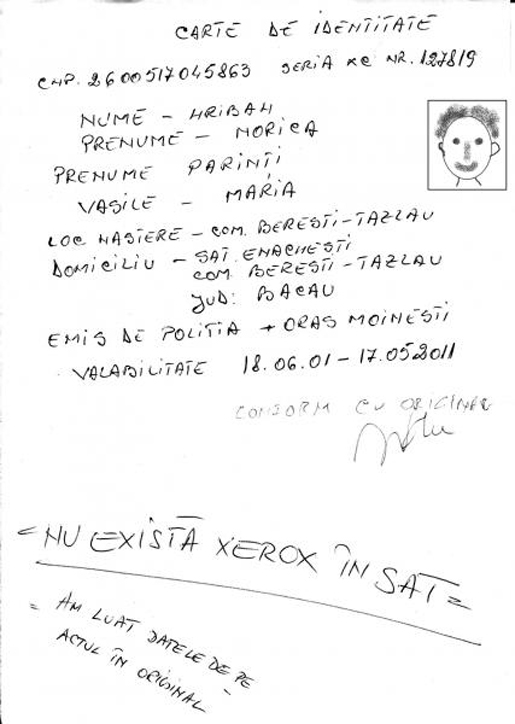 CARTE DE IDENTITATE
CNP. 2600517045863 SERIA XC NR. 127819
NUME - HRIBAH
PRENUME - NORICA
PRENUME PARINTI
VASILE - MARIA
LOC NASTERE - COM. BERESTI-TAZLAU
DOMICILIU - SAT. ENACHESTI
COM. BERESTI-TAZLAU
JUD: BACAU
EMIS DE POLITIA + ORAS MOINESTI
VALABILITATE 18.06.01 - 17.05 2011
CONFORM CU ORIGINAL
= NU EXISTĂ XEROX ÎN SAT =
= AM LUAT DATELE DE PE
ACTUL ÎN ORIGINAL